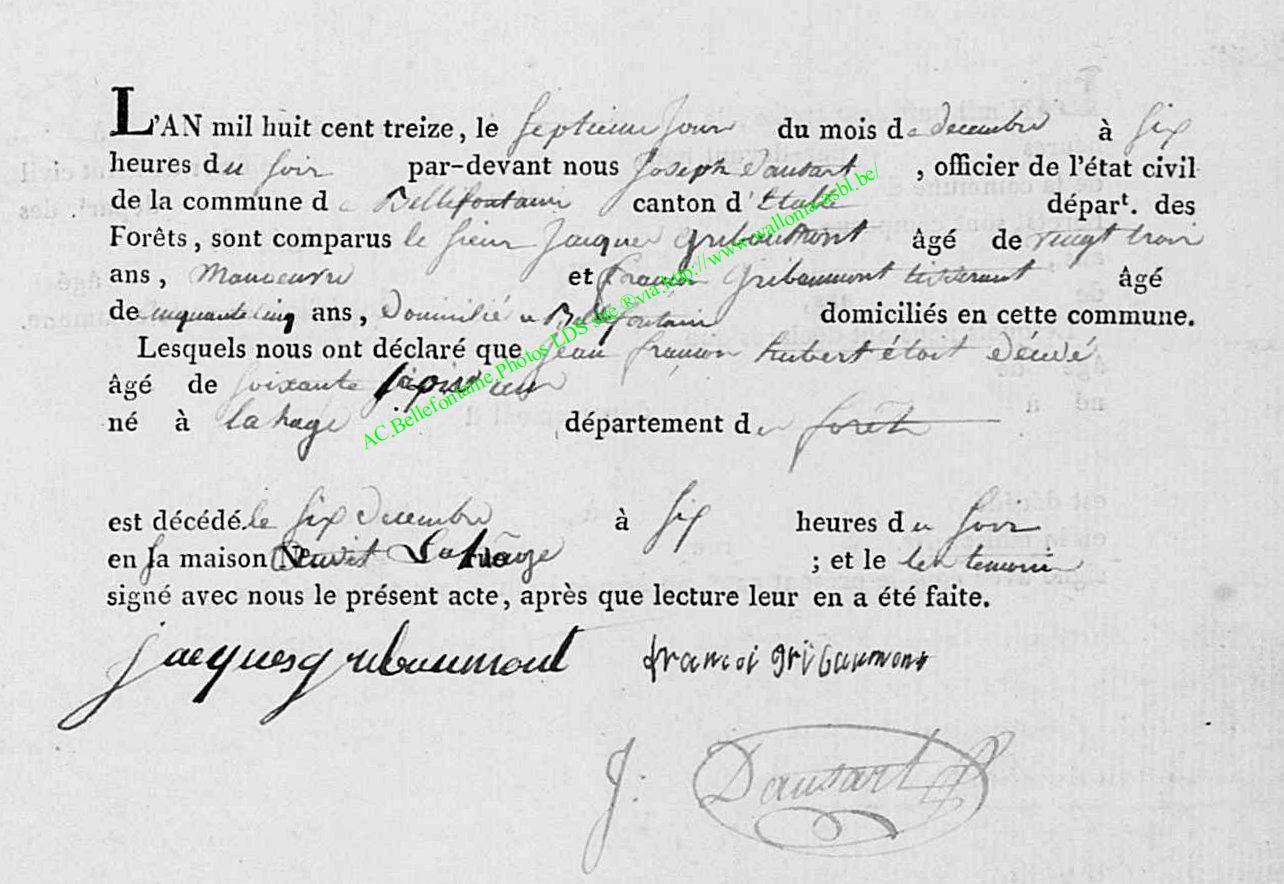 L'AN mil huit cent treize, le septieme jour du mois de decembre à six
heures du soir par-devant nous Joseph Dausart, officier de l'état civil
de la commune de Bellefontaine canton d'Etalle départ. des
Forêts, sont comparus le sieur Jacques Gribaumont âgé de vingt trois
ans, Manoeuvre et francois Gribaumont tisserant âgé
de cinquante cinq ans, Domicilié a Bellefontaine domiciliés en cette commune.
Lesquels nous ont déclaré que jean francois hubert étoit décédé
âgé de soixante ans
né à lahage département des forêts
est décédé le six decembre à six heures du soir
en sa maison Lahage rue ; et le les temoins
signé avec nous le présent acte, après que lecture leur en a été faite.
jacques gribaumont francoi gribaumont
J. Dausart
AC.Bellefontaine Photos LDS site ® via http://www.wallonia-asbl.be/